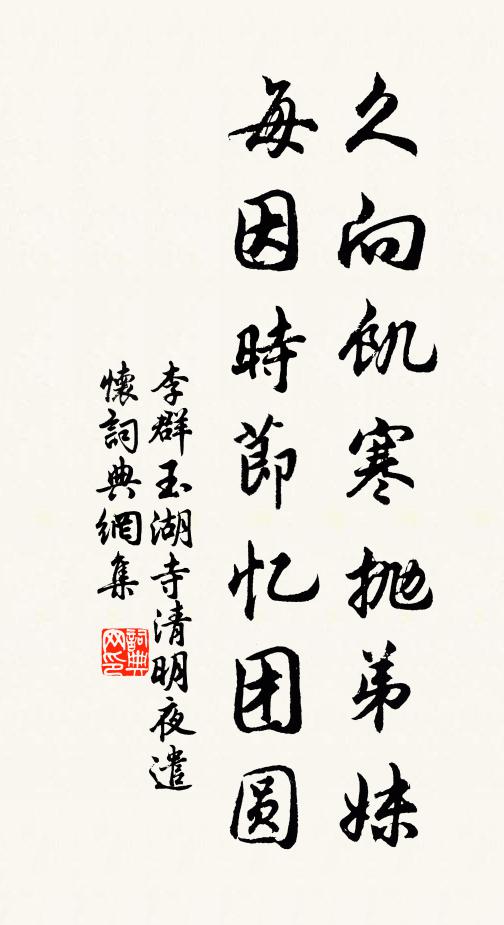 久向饥寒抛弟妹
每因時節忆团圆
李群玉湖寺清明夜遣
懷詞典網集
詞典
网印